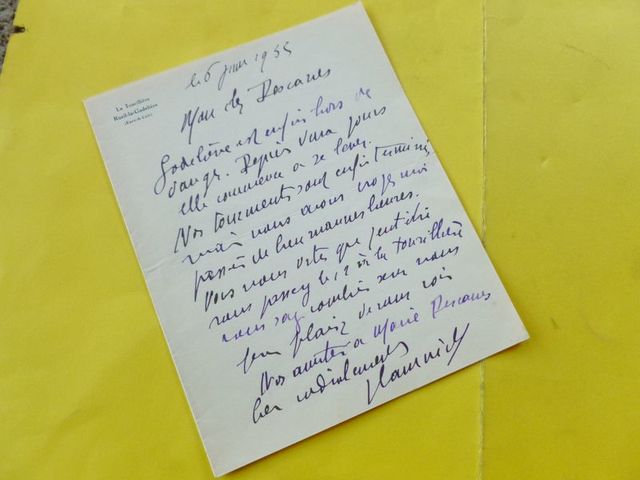 La Tourillière
Rueil-la-Gadelière
(Eure-&-Loir)
le 6 juin 1955
Mon cher Descaves
Godelième est enfin hors de
danger. Depuis deux jours
elle commence à se lever.
Nos tourments sont enfin terminés
mais nous avons croyez moi
passé de bien mauvaises heures.
Vous nous dites que peut être
vous passerez le 12 à la Tourillière
vous savez combien sera nous
fera plaisir de vous voir
Nos amitiés à Marie Descaves
bien cordialement
Vlaminck